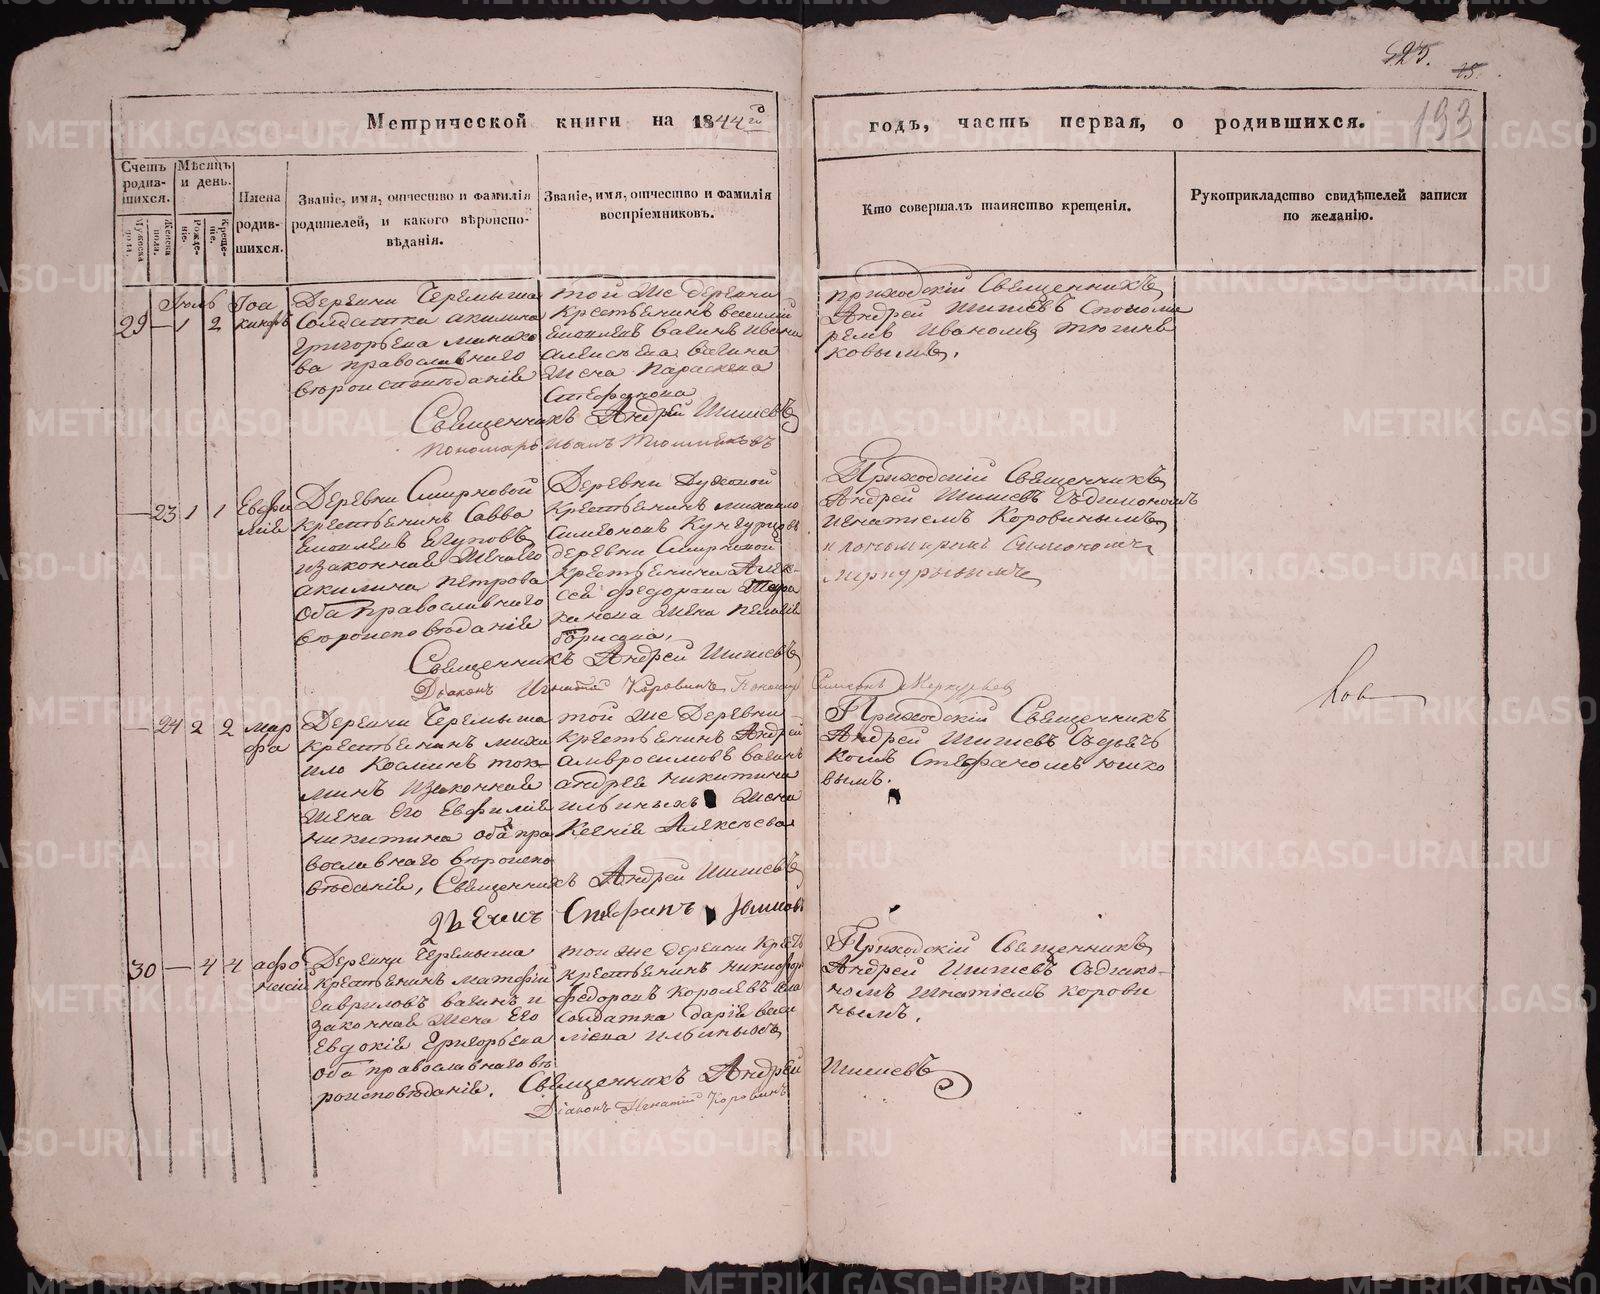 525.
15.
193
Метрической книги на 1844й
годъ, часть первая, о родившихся.
Счетъ родившихся.
Мужеска пола.
Женска пола.
Мѣсяцъ и день.
Рожденіе.
Крещеніе.
Имена родившихся.
Званіе, имя, отчество и фамилія родителей, и какого вѣроисповѣданія.
Званіе, имя, отчество и фамилія воспріемниковъ.
Кто совершалъ таинство крещенія.
Рукоприкладство свидѣтелей записи по желанію.
Іюль
29 — 1 2
Іоа
кимфъ
Деревни Черемыша
Солдатка акилина
григорьева
ва православного
вѣроисповѣданіе
той же деревни
крестьенинъ василий
вагинъ ивана
алексѣева вагина
жена параскева
Стефанова
приходскій Священникъ
Андрей Шишевъ Спонома
ремъ Иваномъ тюшня
ковымъ.
Священникъ Андрей Шишевъ
пономарь Иванъ Тюшняковъ
— 23 1 1
Евфи
міе
Деревни Смирновой
крестьенинъ Савва
Егуповъ
изаконная жена его
акилина петрова
оба православнаго
вѣроисповѣданіе
Деревни Духовой
крестьенинъ михаило
Симеоновъ Кунгурцовъ
деревни Смирновой
крестьенина Алек-
сея федорова
жена пелагіе
борисова,
Приходскій Священникъ
Андрей Шишевъ Съдиякономъ
игнатіемъ Коровинымъ
и пономаремъ Симеономъ
меркурьевымъ
Священникъ Андрей Шишевъ
Діаконъ Игнатій Коровинъ Пономарь Симеонъ Меркурьев
— 24 2 2
мар
фа
Деревни Черемыша
крестьенинъ миха
ило Косминъ ток-
минъ изаконная
жена его Евфиміе
никитина оба пра
вославнаго вѣроиспо
вѣданіе,
той же Деревни
крестьенинъ Андрей
амвросимовъ вагинъ
андрея никитина
ильиныхъ жена
Ксеніе Алексѣева
Приходскій Священникъ
Андрей Шишевъ Съдьяч
комъ Стефаномъ юшко
вымъ.
Священникъ Андрей Шишевъ
дьячекъ Стефанъ Юшковъ
30 — 4 4
афо
насий
Деревни Черемыша
крестьенинъ матфій
гавриловъ вагинъ и
законная жена его
Евдокіе Григорьева
оба православнаго вѣ
роисповѣданіе.
той же деревни
крестьенинъ никифоръ
федоровъ королевъ
солдатка даріе васи
лиева ильиныхъ
Приходскій Священникъ
Андрей Шишевъ Съдіако-
номъ Игнатіемъ корови
нымъ.
Священникъ Андрей Шишевъ
Діаконъ Игнатій Коровинъ
METRIKI.GASO-URAL.RU